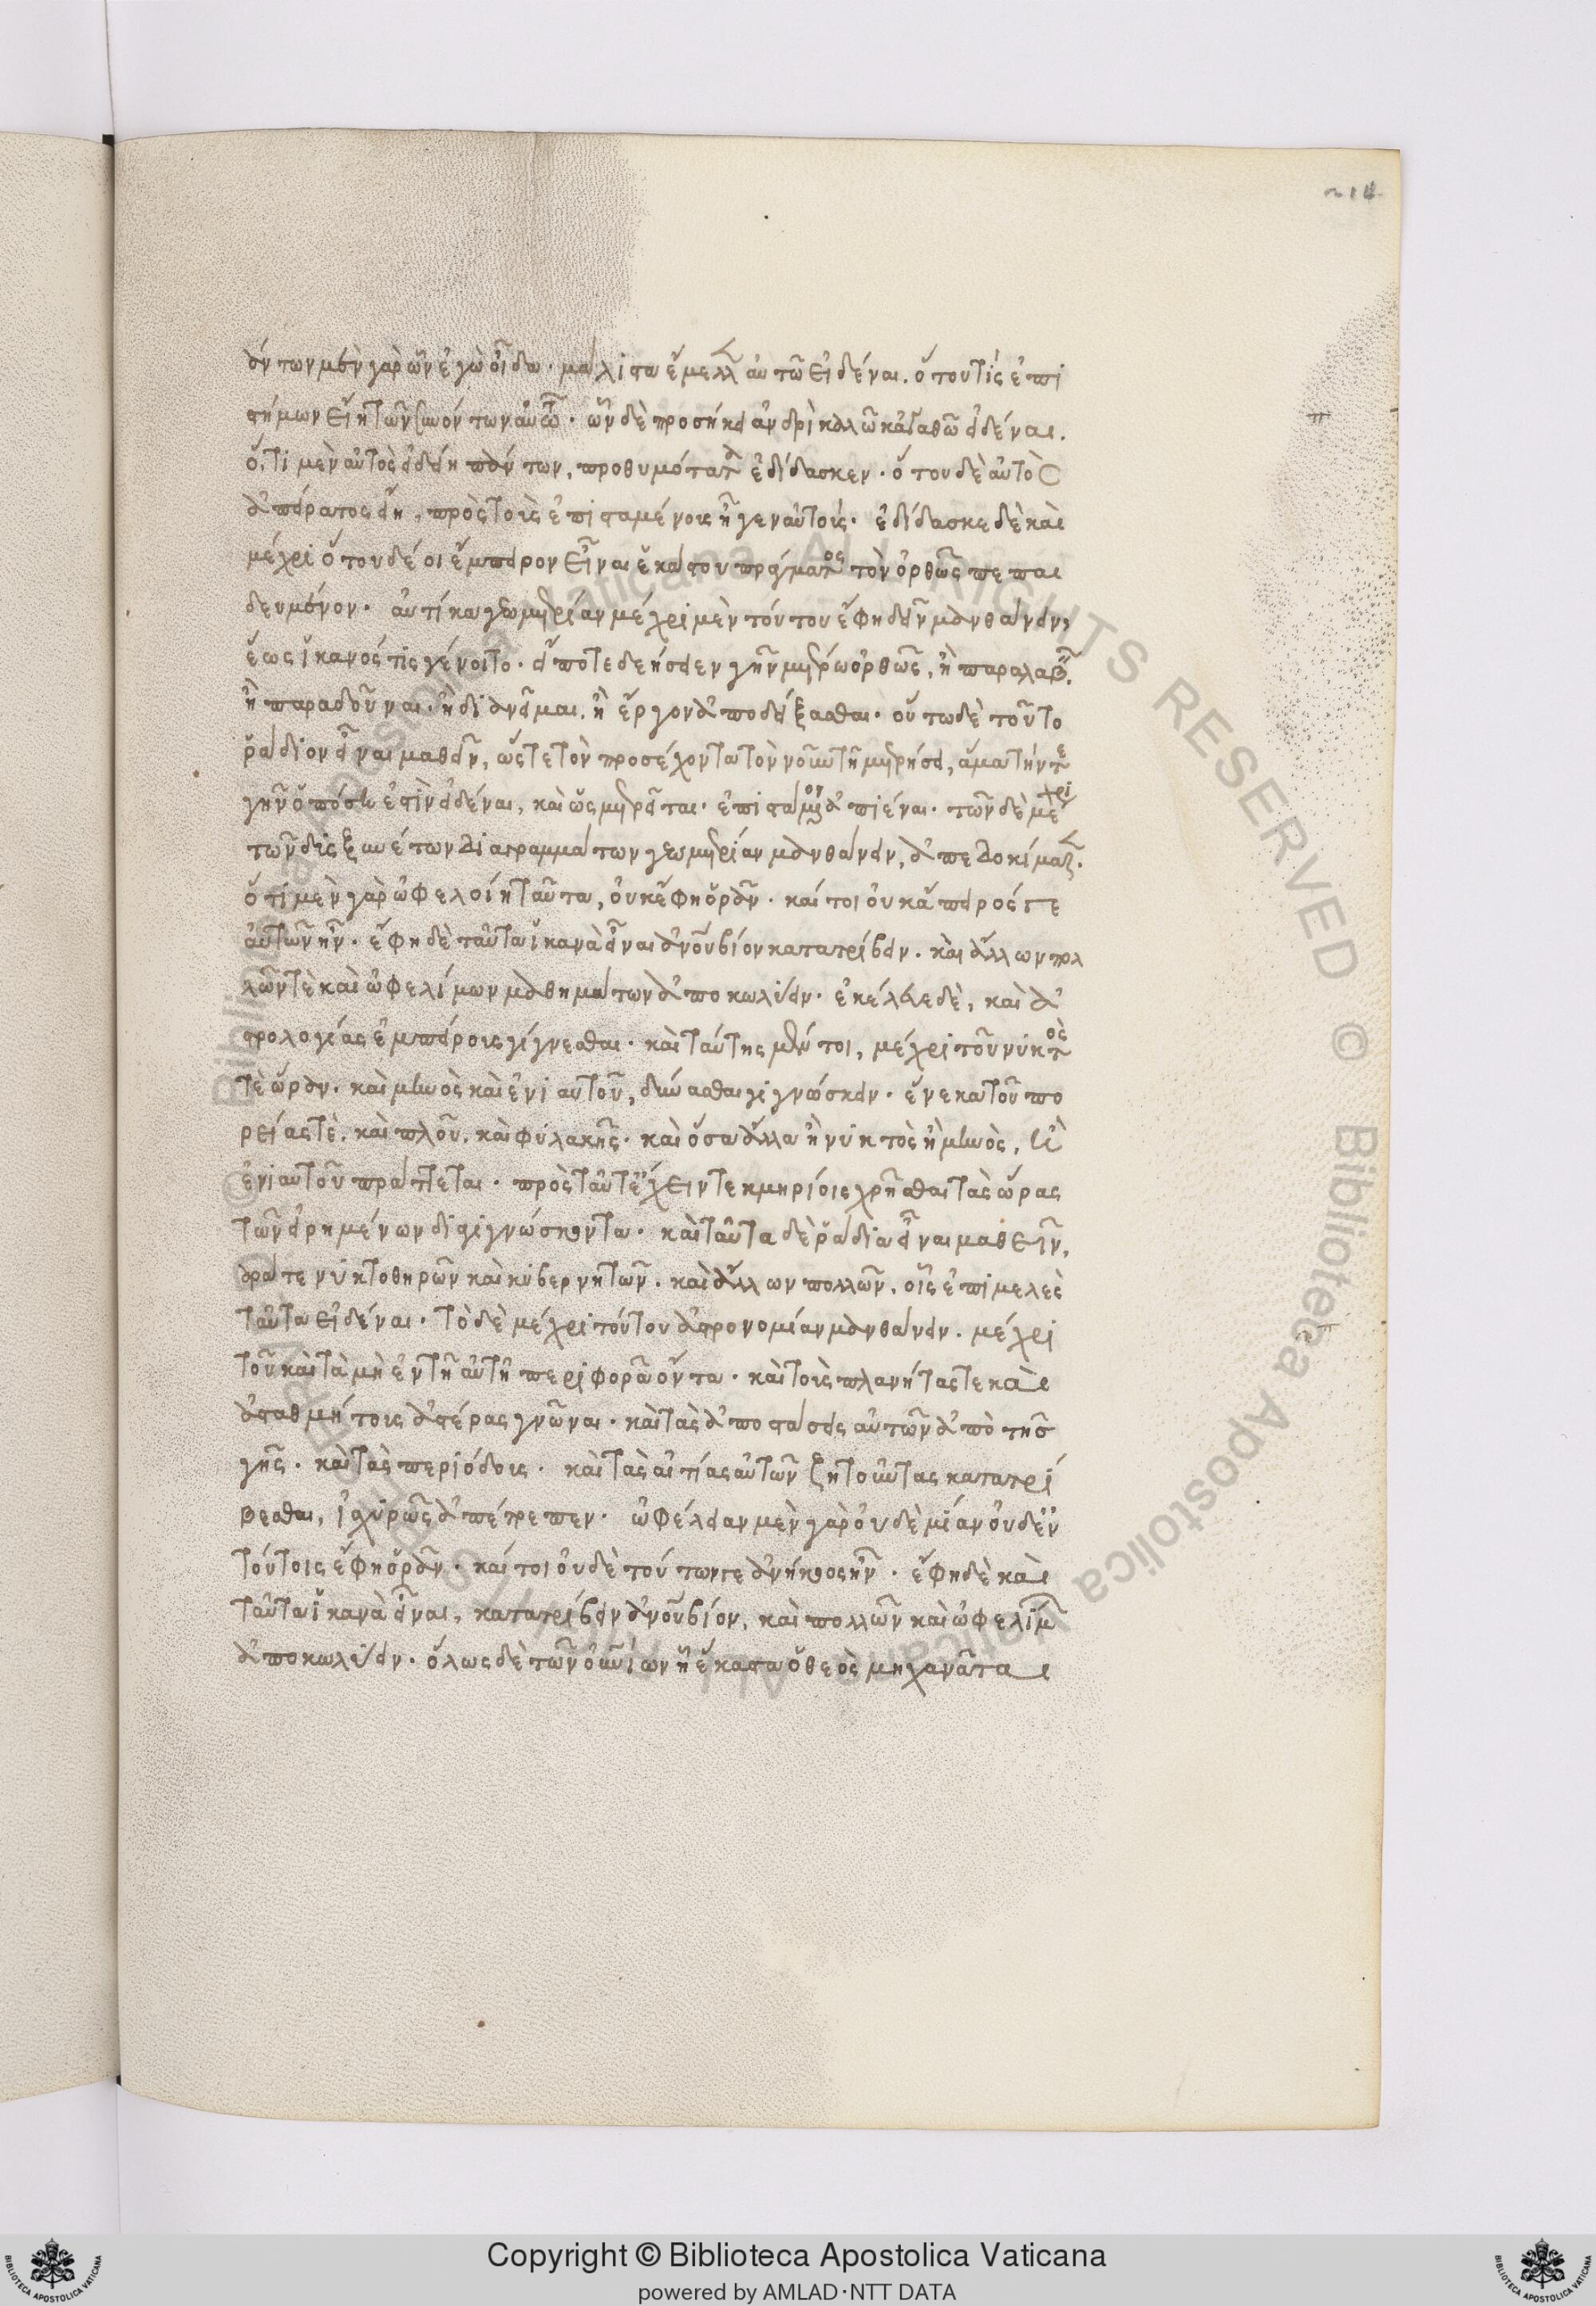 214
πάντων μὲν γὰρ ὧν ἐγὼ οἶδα· μάλιστα ἔμελλεν αὐτῷ εἰδέναι. ὅτου τίς ἐπι
στήμων εἴη τῶν συνόντων αὐτῷ· ὧν δὲ προσήκει ἀνδρὶ καλῶ κἀγαθῶ εἰδέναι.
ὅ,τι μὲν αὐτὸς εἰδείη πάντων, προθυμότατα ἐδίδασκεν· ὅτου δὲ αὐτὸς
ἀπείρατος εἴη, πρὸς τοὺς ἐπισταμένους ἦγεν αὐτούς· ἐδίδασκε δὲ καὶ
μέχρι ὅτου δέοι ἔμπειρον εἶναι ἑκάστου πράγματος τὸν ὀρθῶς πεπαι
δευμένον· αὐτίκα γεωμετρίαν μέχρι μὲν τούτου ἔφη δεῖν μανθάνειν,
ἕως ἱκανός τις γένοιτο· εἴποτε δεήσειεν γῆν μέτρω ὀρθῶς, ἢ παραλαβεῖν.
ἢ παραδοῦναι. ἢ διανεῖμαι. ἢ ἔργον ἀποδείξασθαι· οὕτω δὲ τοῦτο
ῥάδιον εἶναι μαθεῖν, ὥστε τὸν προσέχοντα τὸν νοῦν τῇ μετρήσει, ἅμα τήν τε
γῆν ὁπόση ἐστὶν εἰδέναι, καὶ ὡς μετρεῖται· ἐπιστάμενον ἀπιέναι· τῶν δὲ μέχρι
τῶν δυσξυνέτων διαγραμμάτων γεωμετρίαν μανθάνειν, ἀπεδοκίμαζεν.
ὅ τι μὲν γὰρ ὠφελοίη ταῦτα, οὐκ ἔφη ὁρᾶν· καίτοι οὐκ ἄπειρός γε
αὐτῶν ἦν· ἔφη δὲ ταῦτα ἱκανὰ εἶναι ἀνοῦ βίον κατατρίβειν. καὶ ἄλλων πολ
λῶν τὲ καὶ ὠφελίμων μαθημάτων ἀποκωλύειν· ἐκέλευε δὲ, καὶ ἀ
στρολογίας ἐμπείρους γίγνεσθαι· καὶ ταύτης μέντοι, μέχρι τοῦ νυκτός
τὲ ὥραν. καὶ μηνὸς καὶ ἐνιαυτοῦ, δύνασθαι γιγνώσκειν· ἕνεκα τοῦ πο
ρείας τὲ. καὶ πλοῦ. καὶ φυλακῆς· καὶ ὅσα ἄλλα ἢ νυκτὸς ἢ μηνὸς, ἢ
ἐνιαυτοῦ πράττεται· πρὸς ταῦτ' ἔχειν τεκμηρίοις χρῆσθαι τὰς ὥρας
τῶν εἰρημένων διαγιγνώσκοντα· καὶ ταῦτα δὲ ῥάδια εἶναι μαθεῖν,
παρά τε νυκτοθηρῶν καὶ κυβερνητῶν. καὶ ἄλλων πολλῶν. οἷς ἐπιμελὲς
ταῦτα εἰδέναι· τὸ δὲ μέχρι τούτου ἀστρονομίαν μανθάνειν. μέχρι
τοῦ καὶ τὰ μὴ ἐν τῇ αὐτῇ περιφορᾶ ὄντα· καὶ τοὺς πλανήτας τε καὶ
ἀσταθμήτους ἀστέρας γνῶναι· καὶ τὰς ἀποστάσεις αὐτῶν ἀπὸ τῆς
γῆς· καὶ τὰς περιόδους· καὶ τὰς αἰτίας αὐτῶν ζητοῦντας κατατρί
βεσθαι, ἰσχυρῶς ἀπέτρεπεν· ὠφέλειαν μὲν γὰρ οὐδὲ μίαν οὐδ' ἐν
τούτοις ἔφη ὁρᾶν· καίτοι οὐδὲ τούτων γε ἀνήκοος ἦν· ἔφη δὲ καὶ
ταῦτα ἱκανὰ εἶναι, κατατρίβειν ἀνοῦ βίον, καὶ πολλῶν καὶ ὠφελίμων
ἀποκωλύειν· ὅλως δὲ τῶν οὐνίων ᾗ ἕκαστα ὁ θεὸς μηχανᾶται
Copyright © Biblioteca Apostolica Vaticana
powered by AMLAD·NTT DATA